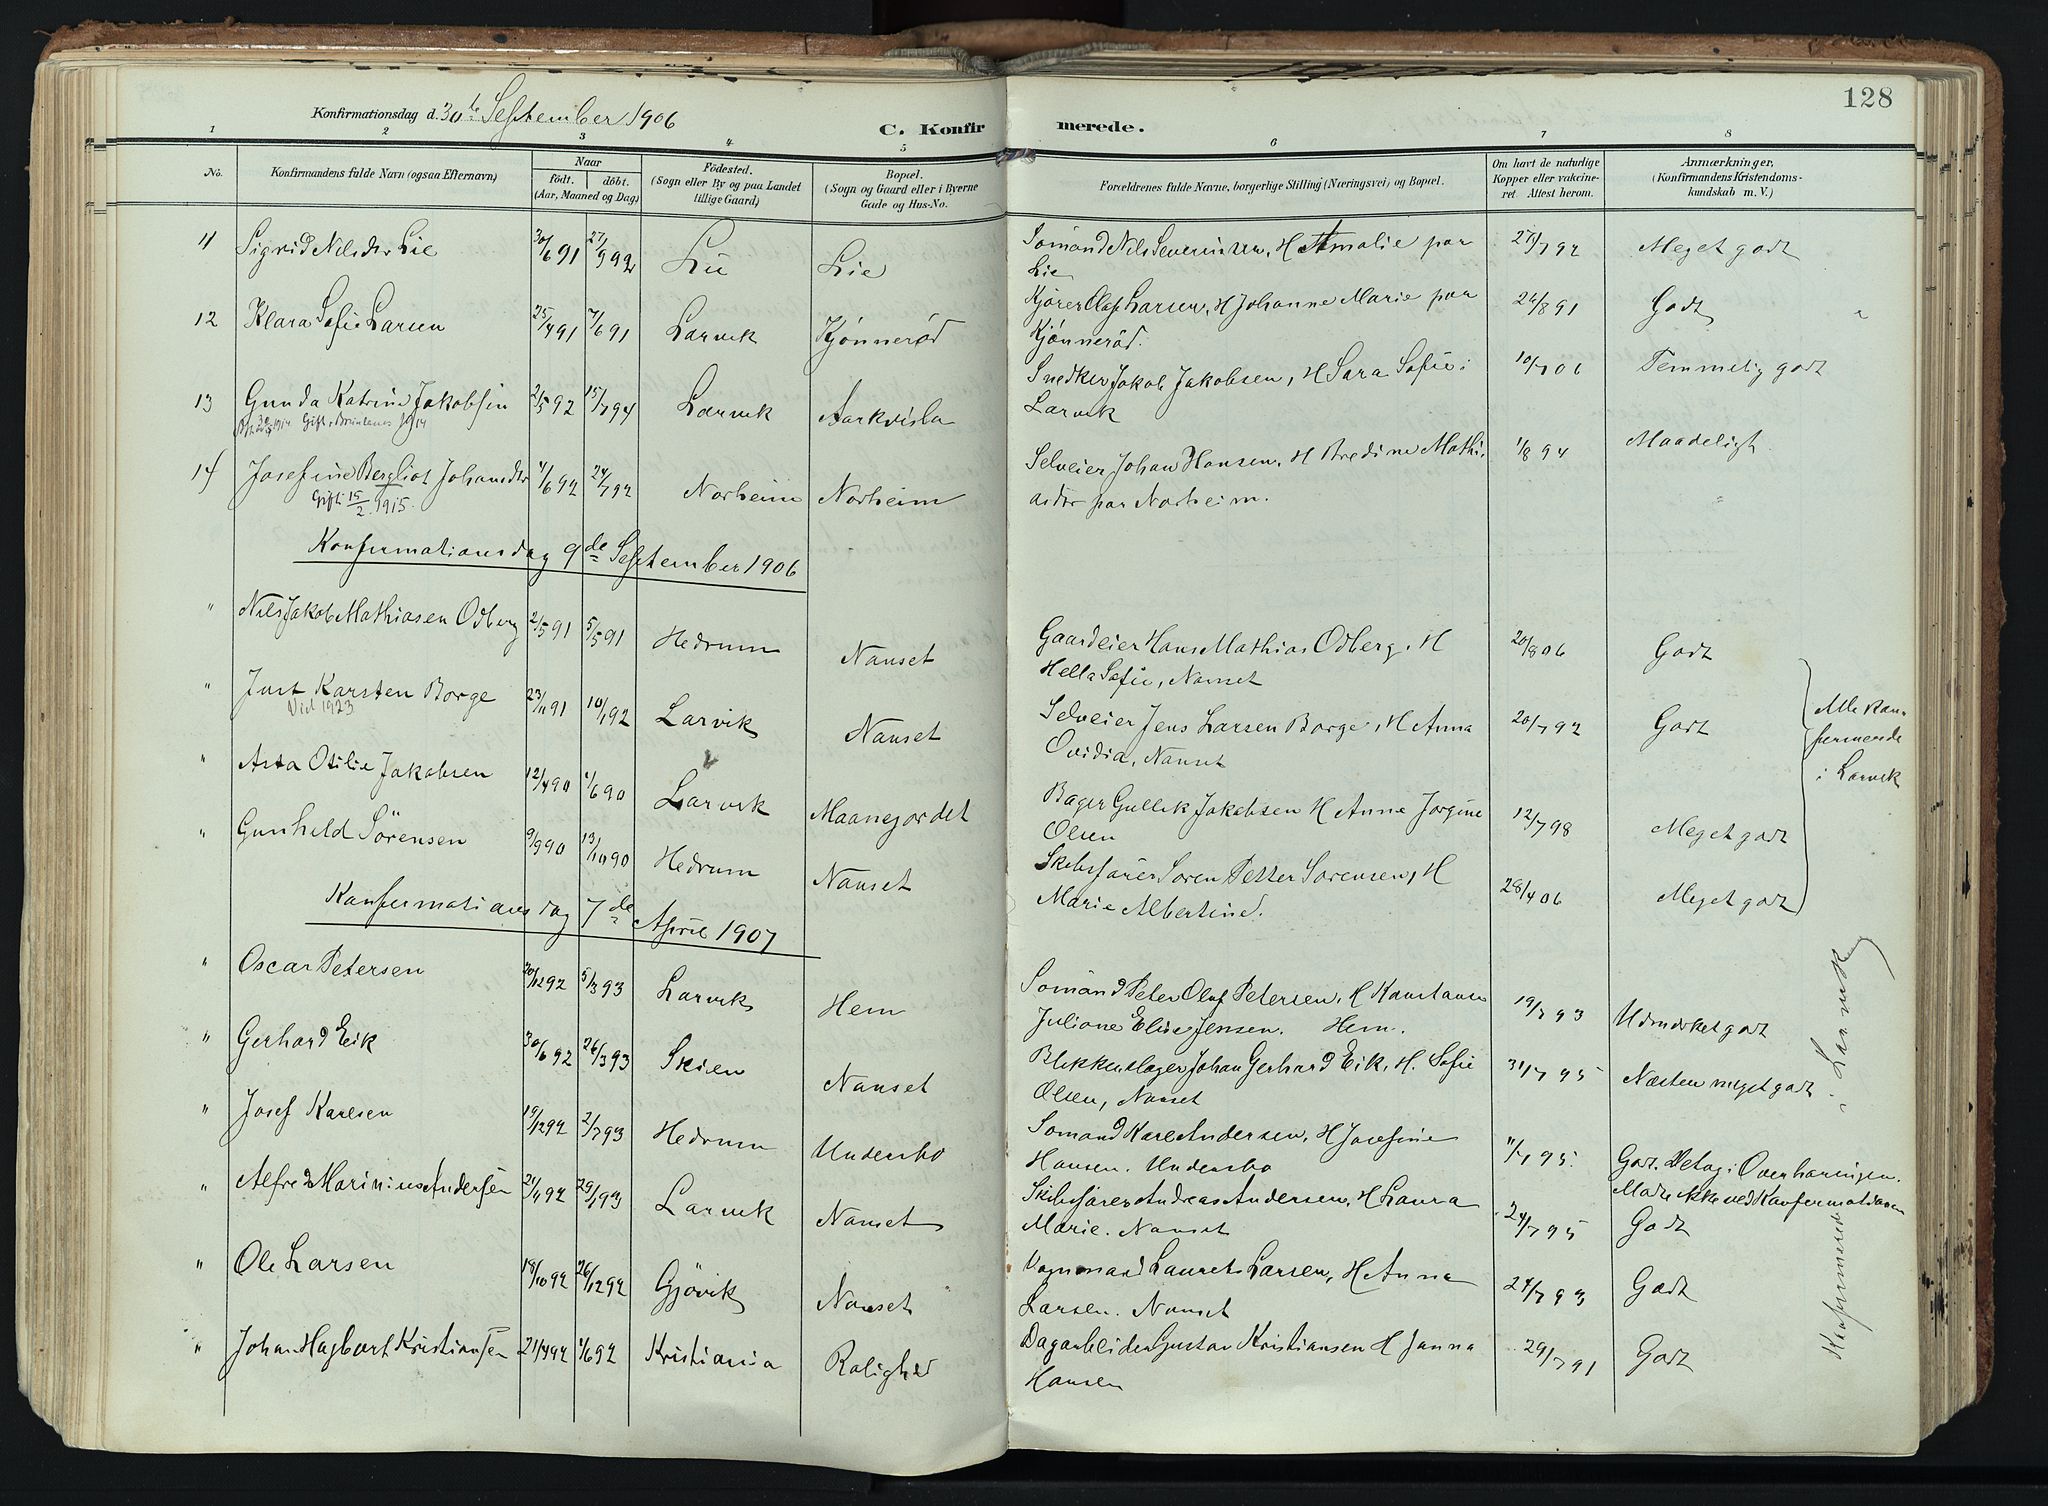 128
Konfirmationsdag d. 30te September 1906
C. Konfirmerede.
1 2 3 4 5 6 7 8
No. Konfirmandens fulde Navn (ogsaa Efternavn) Naar født. døbt. (Aar, Maaned og Dag) Fødested. (Sogn eller By og paa Landet tillige Gaard) Bopæl. (Sogn og Gaard eller i Byerne Gade og Hus-No. Forældrenes fulde Navne, borgerlige Stilling (Næringsvei) og Bopæl. Om havt de naturlige Kopper eller vakcineret Attest herom. Anmærkninger, (Konfirmandens Kristendomskundskab m. V.)
11 Sigrid Nilsdtr Lie 30/6 91 27/9 92 Lie Lie Sömand Nils Severinsen, H Amalie paa 27/7 92 Meget godt
Lie
12 Klara Sofie Larsen 25/4 91 7/6 91 Larvik Kjönneröd Kjörer Olaf Larsen, H Johanne Marie paa 24/8 91 Godt
Kjönneröd.
13 Gunda Katrine Jakobsen 2/5 92 15/7 94 Larvik Aarkvisla Snedker Jakob Jakobsen, H Sara Sofie i 10/7 06 Temmelig godt
Larvik
14 Josefine Bergliot Johansdtr 4/6 92 24/7 92 Norheim Norheim Selveier Johan Hansen, H Bredine Mathi- 1/8 94 Maadeligt
Gift 15/2 1915.
asdtr paa Norheim.
Konfirmationsdag 9de September 1906
" Nils Jakob Mathiasen Odberg 2/5 91 5/5 91 Hedrum Nanset Gaardeier Hans Mathias Odberg, H 20/8 06 Godt
Hella Sofie, Nanset
" Just Karsten Borge 23/11 91 10/1 92 Larvik Nanset Selveier Jens Larsen Borge, H Anna 20/7 92 Godt
Vid 1923
Ovidia, Nanset
Alle konfirmerede i Larvik
" Asta Otilie Jakobsen 12/4 90 1/6 90 Larvik Maanejordet Bager Gullik Jakobsen H Anne Jorgine 12/7 98 Meget godt
Olsen
" Gunhild Sörensen 9/9 90 13/10 90 Hedrum Nanset Skibsförer Sören Petter Sörensen, H 28/4 06 Meget godt
Marie Albertine.
Konfirmationsdag 7de April 1907
" Oscar Petersen 20/12 92 5/3 93 Larvik Hem Sömand Peter Oluf Petersen, H Konstanse 19/7 93 Udmerket godt
Juliane Elise Jensen. Hem.
" Gerhard Eik 30/6 92 26/3 93 Skien Nanset Blikkenslager Johan Gerhard Eik, H. Sofie 31/7 95 Næsten meget godt
Olsen, Nanset
" Josef Karlsen 19/12 92 2/7 93 Hedrum Undersbo Sömand Karl Andersen, H Josefine 11/7 95. Godt. Deltog i Overhöringen.
Hansen. Undersbo
Mødte ikke ved Konfermationen
" Alfred Marinius Andersen 24/11 92 29/1 93 Larvik Nanset Skibsförer Andreas Andersen, H Laura 24/7 95 Godt
Marie. Nanset
" Ole Larsen 18/10 92 26/12 92 Gjövik Nanset Vognmand Laurets Larsen, H Anna 24/7 93 Godt
Larsen. Nanset
" Johan Hagbart Kristiansen 21/4 92 1/6 92 Kristiania Rolighed Dagarbeider Gustav Kristiansen H Janna 29/7 91 Godt
Hansen
Konfirmerede i Larvik